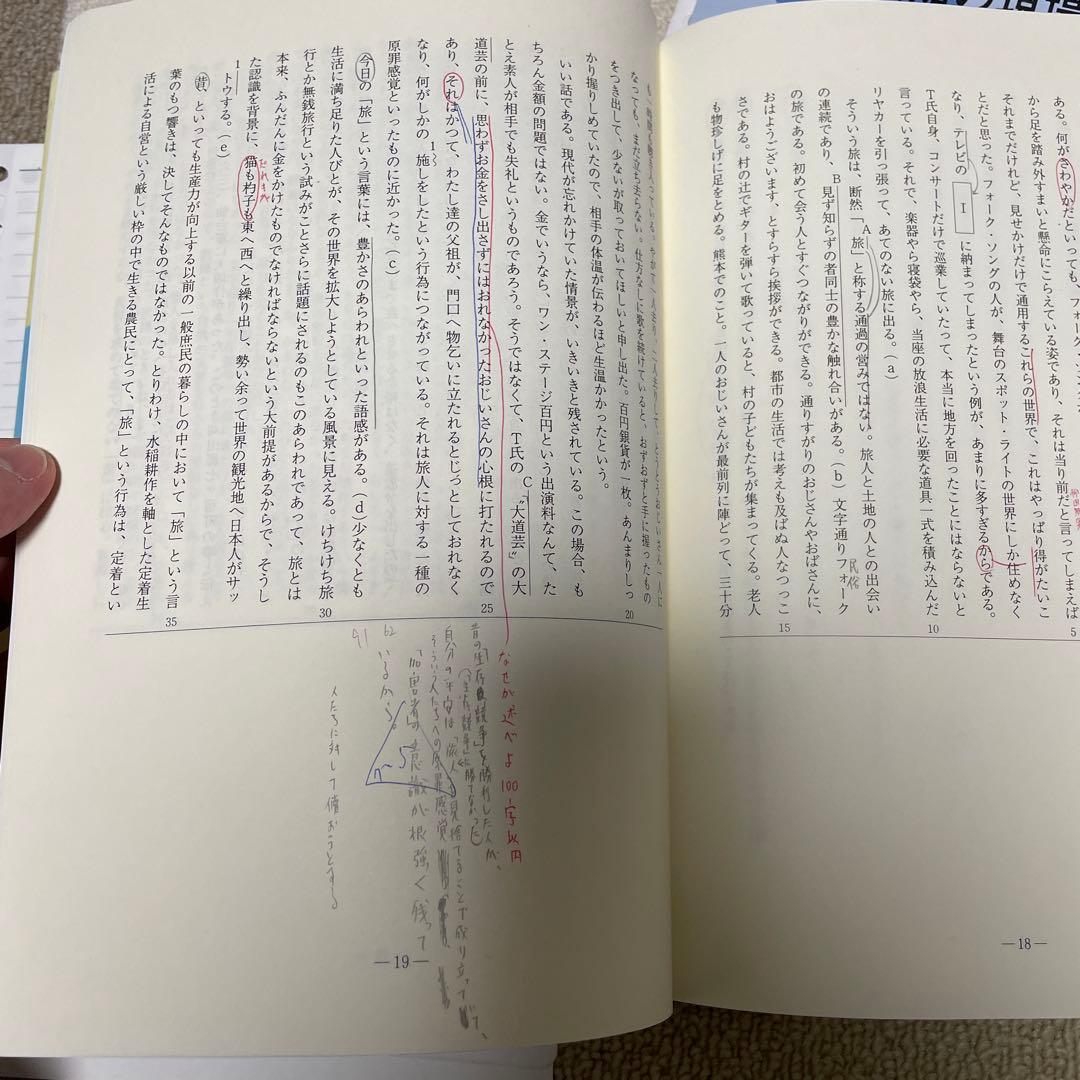 ある。何がさわやかだといっても、フォーク・
から足を踏み外すまいと懸命にこらえている姿であり、それは当り前だと言ってしまえば
それまでだけれど、見せかけだけで通用するこれらの世界で、これはやっぱり得がたいこ
とだと思った。フォーク・ソングの人が、舞台のスポット・ライトの世界にしか住めなく
なり、テレビの I に納まってしまったという例が、あまりに多すぎるからである。
T氏自身、コンサートだけで巡業していたって、本当に地方を回ったことにはならないと
言っている。それで、楽器や寝袋やら、当座の放浪生活に必要な道具一式を積み込んだ
リヤカーを引っ張って、あてのない旅に出る。(a)
そういう旅は、断然「A旅」と称する通過の営みではない。旅人と土地の人との出会い
の連続であり、B見ず知らずの者同士の豊かな触れ合いがある。(b)文字通りフォーク
民俗
の旅である。初めて会う人とすぐつながりができる。通りすがりのおじさんやおばさんに、
おはようございます、とすらすら挨拶ができる。都市の生活では考えも及ばぬ人なつっこ
さである。村の辻でギターを弾いて歌っていると、村の子どもたちが集まってくる。老人
も物珍しげに足をとめる。熊本でのこと。一人のおじいさんが最前列に陣どって、三十分
5
10
15
―18―
なっても、まだ立ち去らない。仕方なしに歌を続けていると、おずおずと手に握ったもの
をつき出して、少ないが取っておいてほしいと申し出た。百円銀貨が一枚。あんまりしっ
かり握りしめていたので、相手の体温が伝わるほど生温かかったという。
いい話である。現代が忘れかけていた情景が、いきいきと残されている。この場合、も
ちろん金額の問題ではない。金でいうなら、ワン・ステージ百円という出演料なんて、た
とえ素人が相手でも失礼というものであろう。そうではなくて、T氏のC〝大道芸〟の大
道芸の前に、思わずお金をさし出さずにはおれなかったおじいさんの心根に打たれるので
あり、それはかつて、わたし達の父祖が、門口へ物乞いに立たれるとじっとしておれなく
なり、何がしかの1施しをしたという行為につながっている。それは旅人に対する一種の
原罪感覚といったものに近かった。(c)
今日の「旅」という言葉には、豊かさのあらわれといった語感がある。(d)少なくとも
生活に満ち足りた人びとが、その世界を拡大しようとしている風景に見える。けちけち旅
行とか無銭旅行という試みがことさらに話題にされるのもこのあらわれであって、旅とは
本来、ふんだんに金をかけたものでなければならないという大前提があるからで、そうし
た認識を背景に、猫も杓子も東へ西へと繰り出し、勢い余って世界の観光地へ日本人がサッ
だれもかれも
1トウする。(e)
昔、といっても生産力が向上する以前の一般庶民の暮らしの中において「旅」という言
葉のもつ響きは、決してそんなものではなかった。とりわけ、水稲耕作を軸とした定着生
活による自営という厳しい枠の中で生きる農民にとって、「旅」という行為は、定着とい
20
25
30
35
なぜか述べよ 100字以内
昔の「生存競争」を勝利した人が、
自分の平安は「旅人」を見捨てることで成り立っていて、
そういう人たちへの原罪感覚
「加害者」の意識が根強く残って
いるから。
62
91
人たちに対して償おうとする
―19―